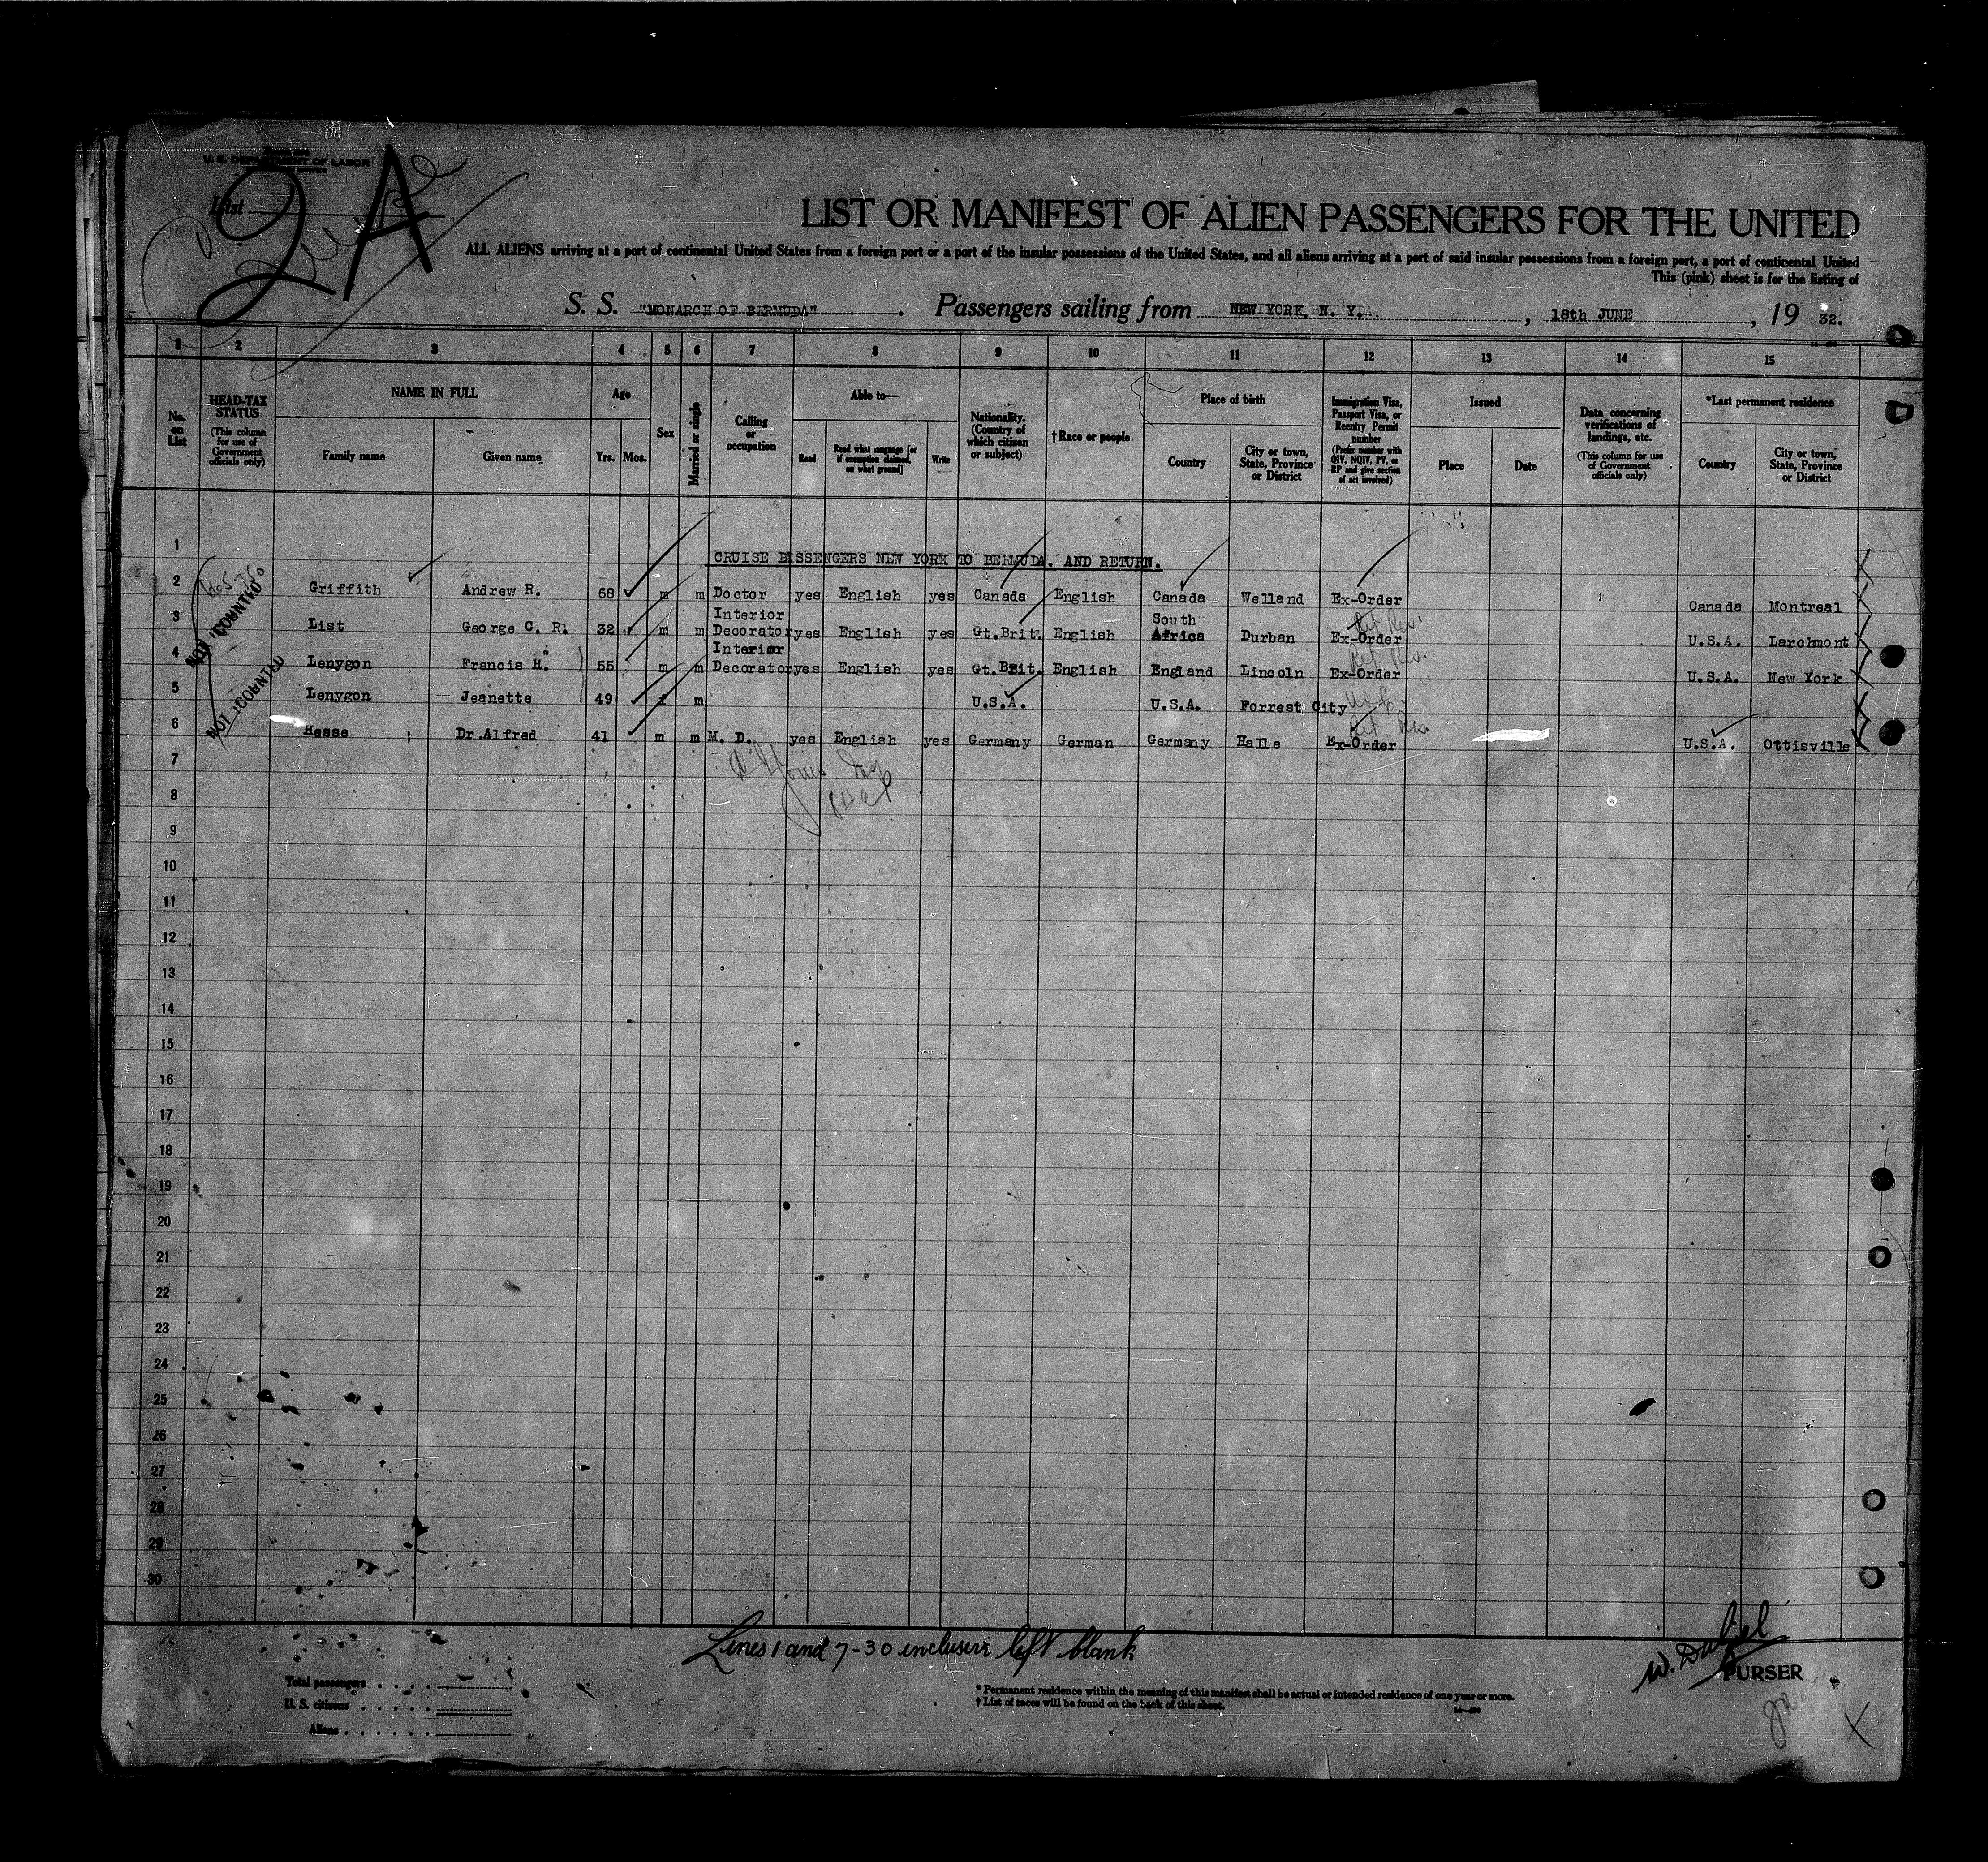 U. S. DEPARTMENT OF LABOR
List
2A
LIST OR MANIFEST OF ALIEN PASSENGERS FOR THE UNITED
ALL ALIENS arriving at a port of continental United States from a foreign port or a port of the insular possessions of the United States, and all aliens arriving at a port of said insular possessions from a foreign port, a port of continental United
This (pink) sheet is for the listing of
S. S. "MONARCH OF BERMUDA". Passengers sailing from NEW YORK, N. Y., 18th JUNE, 19 32.
1 2 3 4 5 6 7 8 9 10 11 12 13 14 15
No. on List
HEAD-TAX STATUS (This column for use of Government officials only)
NAME IN FULL
Family name Given name
Age
Yrs. Mos.
Sex
Married or single
Calling or occupation
Able to—
Read Read what language [or if exemption claimed, on what ground] Write
Nationality. (Country of which citizen or subject)
†Race or people
Place of birth
Country City or town, State, Province or District
Immigration Visa, Passport Visa, or Reentry Permit number (Prefix number with QIV, NQIV, PV, or RP and give section of act involved)
Issued
Place Date
Data concerning verifications of landings, etc. (This column for use of Government officials only)
*Last permanent residence
Country City or town, State, Province or District
1
CRUISE PASSENGERS NEW YORK TO BERMUDA. AND RETURN.
2 Griffith Andrew R. 68 m m Doctor yes English yes Canada English Canada Welland Ex-Order Canada Montreal
3 List George C. R. 32 m m Interior Decorator yes English yes Gt.Brit. English South Africa Durban Ex-Order U.S.A. Larchmont
4 Lenygon Francis H. 55 m m Interior Decorator yes English yes Gt.Brit. English England Lincoln Ex-Order U.S.A. New York
5 Lenygon Jeanette 49 f m U.S.A. U.S.A. Forrest City
6 Hesse Dr.Alfred 41 m m M. D. yes English yes Germany German Germany Halle Ex-Order U.S.A. Ottisville
NOT COUNTED
NOT COUNTED
7
8
9
10
11
12
13
14
15
16
17
18
19
20
21
22
23
24
25
26
27
28
29
30
Lines 1 and 7-30 inclusive left blank
PURSER
Total passengers
U. S. citizens
Aliens
* Permanent residence within the meaning of this manifest shall be actual or intended residence of one year or more.
† List of races will be found on the back of this sheet.